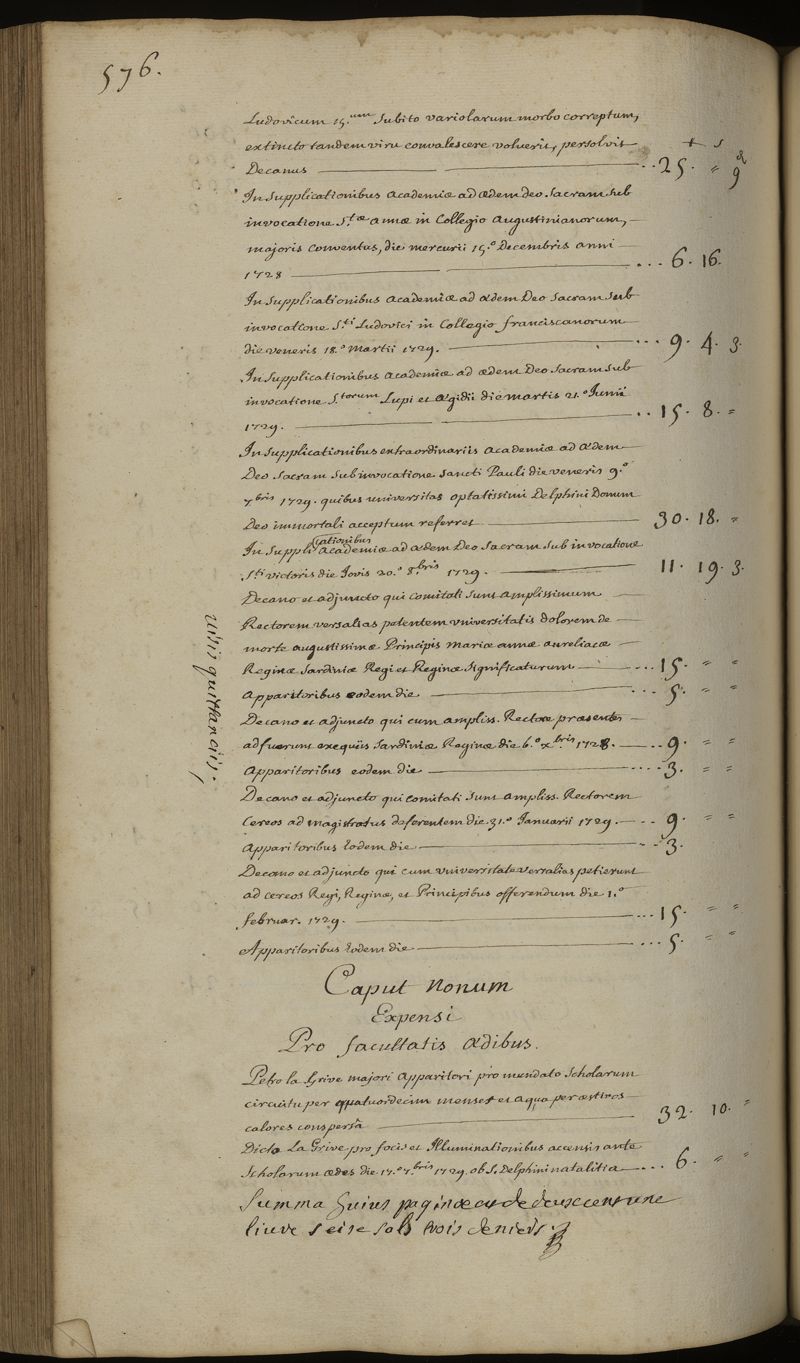 576.
Ludovicum 15.um subito variolarum morbo correptum,
extincto tandem viru convalescere voluerit, persolvit
Decanus —— 25. " 9
In Supplicationibus Academiæ ad ædem Deo Sacram Sub
invocatione S.tæ annæ in Collegio Augustinianorum, —
majoris Conventus, die mercurii 15.o Decembris anni —
1728 —— 6. 16.
In Supplicationibus academiæ ad ædem Deo Sacram Sub
invocatione S.ti Ludovici in Collegio franciscanorum
die veneris 18.o Martii 1729. —— 9. 4. 3.
In Supplicationibus academiæ ad ædem Deo Sacram Sub
invocatione S.torum Lupi et Ægidii die martis 21.o Junii
1729. —— 15. 8. "
In Supplicationibus extraordinariis academiæ ad ædem
Deo Sacram Sub invocatione Sancti Pauli die veneris 9.o
7.bris 1729. quibus universitas optatissimi Delphini Donum
Deo immortali acceptum referret —— 30. 18. "
In Supplicationibus academiæ ad ædem Deo Sacram Sub invocatione
S.ti victoris die Jovis 20.o 8.bris 1729. —— 11. 19. 3.
Decano et adjuncto qui comitati Sunt amplissimum —
Rectorem versalias petentem universitatis dolorem de —
morte augustissimæ Principis mariæ annæ aureliacæ —
Reginæ Sardiniæ Regi et Reginæ Significaturum —— 15. " "
Apparitoribus eodem die —— 5. " "
Decano et adjuncto qui cum ampliss. Rectore præsentes
adfuerunt exequiis Sardiniæ Reginæ die 6.o x.bris 1728. —— 9. " "
Apparitoribus eodem die —— 3. " "
Decano et adjuncto qui comitati Sunt ampliss. Rectorem
Cereos ad magistratus deferentem die 31.o Januarii 1729. — 9. " "
Apparitoribus Eodem die —— 3.
Decano et adjuncto qui cum universitate versalias petierunt
ad cereos Regi, Reginæ, et Principibus offerendum die 1.o
februar. 1729. —— 15. " "
Apparitoribus Eodem die —— 5. " "
visis quittanciis.
Caput Nonum
Expensi
Pro facultatis ædibus.
Petro la Grive majori Apparitori pro mundato Scholarum
circuitu per quatuordecim menses et aqua per æstivos
calores conspersâ —— 32. 10. "
Dicto La Grive pro focis et Illuminationibus accensis ante
Scholarum ædes die 17.o 7.bris 1729. ob S. Delphini natalitia —— 6. " "
Summa huius paginæ est de deux cent une
livre seize sols trois deniers